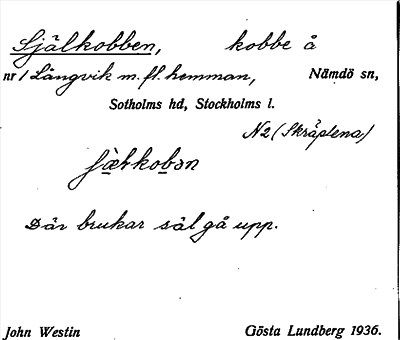 Själkobben, kobbe å
nr 1 Långvik m.fl. hemman, Nämdö sn,
Sotholms hd, Stockholms l.
N2 (Skråplena)
Där brukar säl gå upp.
John Westin Gösta Lundberg 1936.